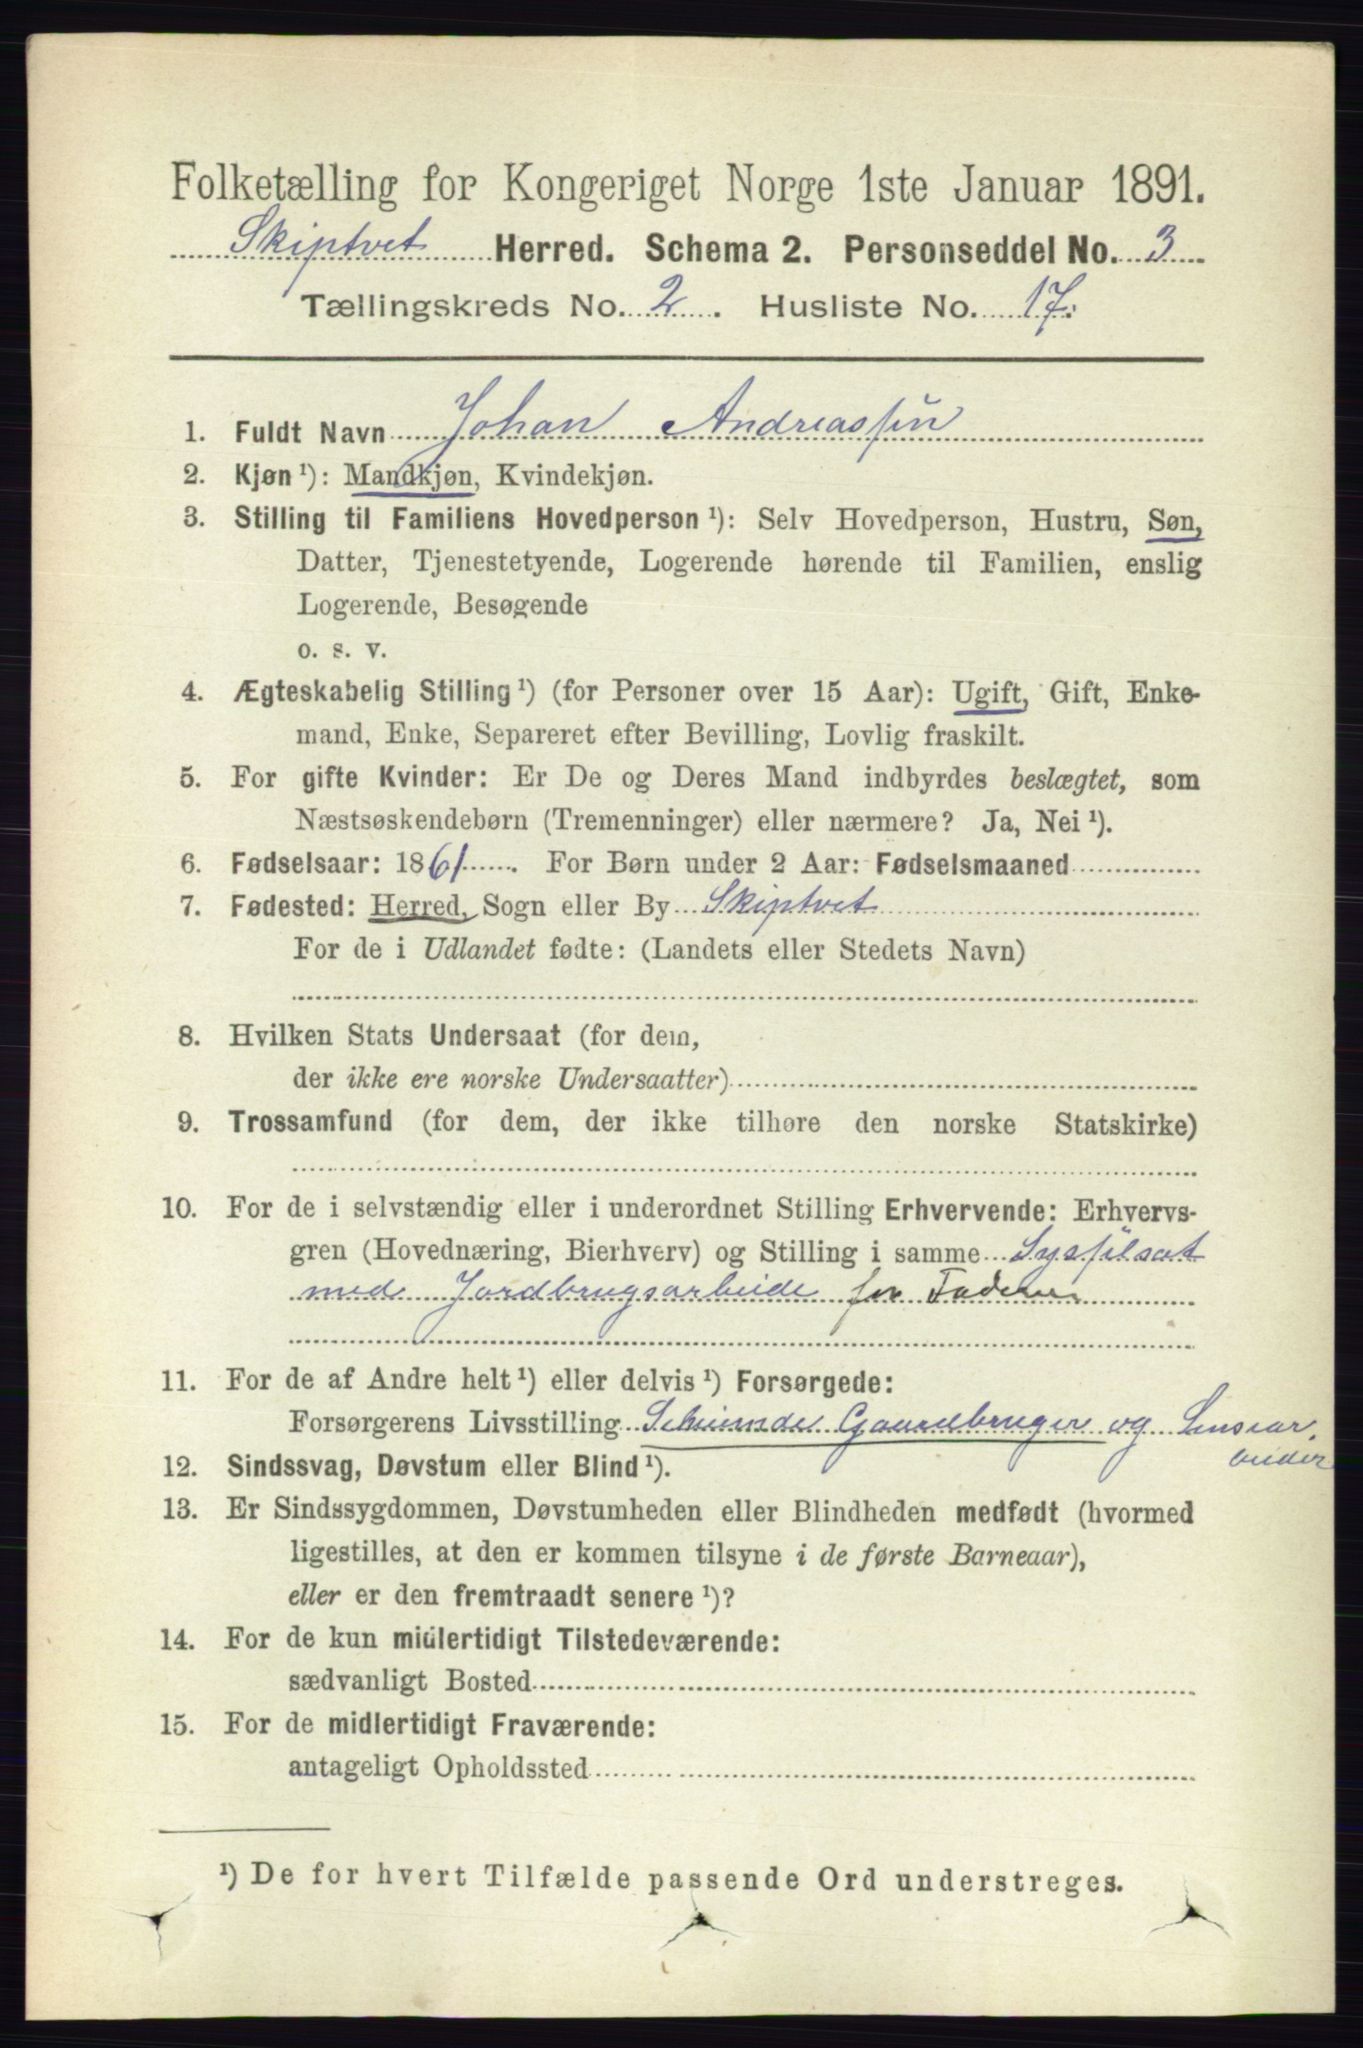 Folketælling for Kongeriget Norge 1ste Januar 1891.
Skiptvet Herred. Schema 2. Personseddel No. 3
Tællingskreds No. 2. Husliste No. 17.
1. Fuldt Navn Johan Andreassen
2. Kjøn ¹): Mandkjøn, Kvindekjøn.
3. Stilling til Familiens Hovedperson ¹): Selv Hovedperson, Hustru, Søn,
Datter, Tjenestetyende, Logerende hørende til Familien, enslig
Logerende, Besøgende
o. s. v.
4. Ægteskabelig Stilling ¹) (for Personer over 15 Aar): Ugift, Gift, Enke-
mand, Enke, Separeret efter Bevilling, Lovlig fraskilt.
5. For gifte Kvinder: Er De og Deres Mand indbyrdes beslægtet, som
Næstsøskendebørn (Tremenninger) eller nærmere? Ja, Nei ¹).
6. Fødselsaar: 1861. For Børn under 2 Aar: Fødselsmaaned
7. Fødested: Herred, Sogn eller By Skiptvet
For de i Udlandet fødte: (Landets eller Stedets Navn)
8. Hvilken Stats Undersaat (for dem,
der ikke ere norske Undersaatter)
9. Trossamfund (for dem, der ikke tilhøre den norske Statskirke)
10. For de i selvstændig eller i underordnet Stilling Erhvervende: Erhvervs-
gren (Hovednæring, Bierhverv) og Stilling i samme Sysselsat
med Jordbrugsarbeide for Faderen
11. For de af Andre helt ¹) eller delvis ¹) Forsørgede:
Forsørgerens Livsstilling Gaardbruger og
12. Sindssvag, Døvstum eller Blind ¹).
13. Er Sindssygdommen, Døvstumheden eller Blindheden medfødt (hvormed
ligestilles, at den er kommen tilsyne i de første Barneaar),
eller er den fremtraadt senere ¹)?
14. For de kun midlertidigt Tilstedeværende:
sædvanligt Bosted
15. For de midlertidigt Fraværende:
antageligt Opholdssted
¹) De for hvert Tilfælde passende Ord understreges.